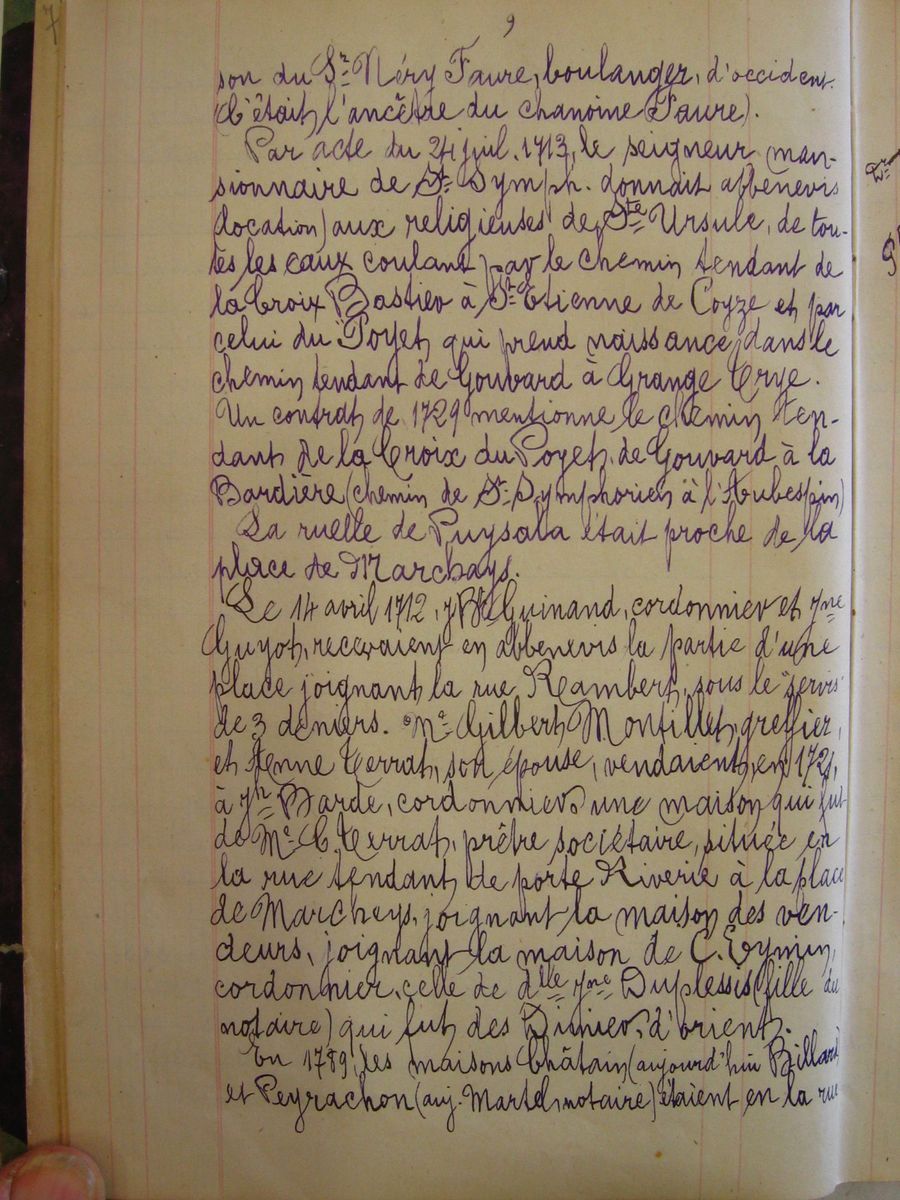 7
9
son du Sr Néry Faure, boulanger, d'occident.
(C'était l'ancêtre du chanoine Faure).
Par acte du 24 juil. 1713, le seigneur man-
sionnaire de St Symph. donnait abbénevis
(location) aux religieuses de Ste Ursule, de tou-
tes les eaux coulant par le chemin tendant de
la Croix Bastier à St Etienne de Coyze et par
celui du Poyet, qui prend naissance dans le
chemin tendant de Gouvard à Grange Crye.
Un contrat de 1729 mentionne le chemin ten-
dant de la Croix du Poyet, de Gouvard à la
Bardière (chemin de St Symphorien à l'Aubespin)
La ruelle de Puysala était proche de la
place de Marchays.
Le 14 avril 1712, Guinand, cordonnier et Jne
Guyot, recevaient en abbenevis la partie d'une
place joignant la rue Rambert, sous le servis
de 3 deniers. Me Gilbert Montillet, greffier,
et Anne Terrat, son épouse, vendaient, en 1721,
à Jh Barde, cordonnier, une maison qui fut
de Me C. Terrat, prêtre sociétaire, située en
la rue tendant de porte Riverie à la place
de Marcheys, joignant la maison des ven-
deurs, joignant la maison de C. Eymin,
cordonnier, celle de dlle Jne Duplessis (fille du
notaire) qui fut des Dimier, d'orient.
En 1789, les maisons Châtain (aujourd'hui Billard)
et Peyrachon (auj. Martel, notaire) étaient en la rue